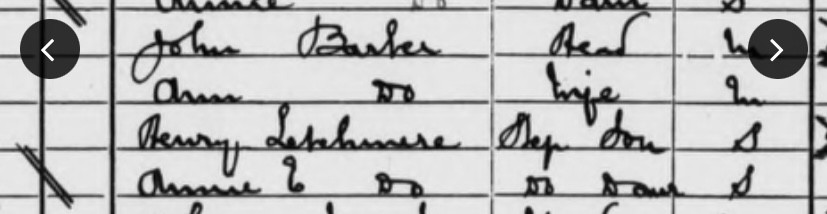 John Barker Head M
Ann Do Wife M
Henry Letchmere Step Son S
Annie E Do Do Daur S